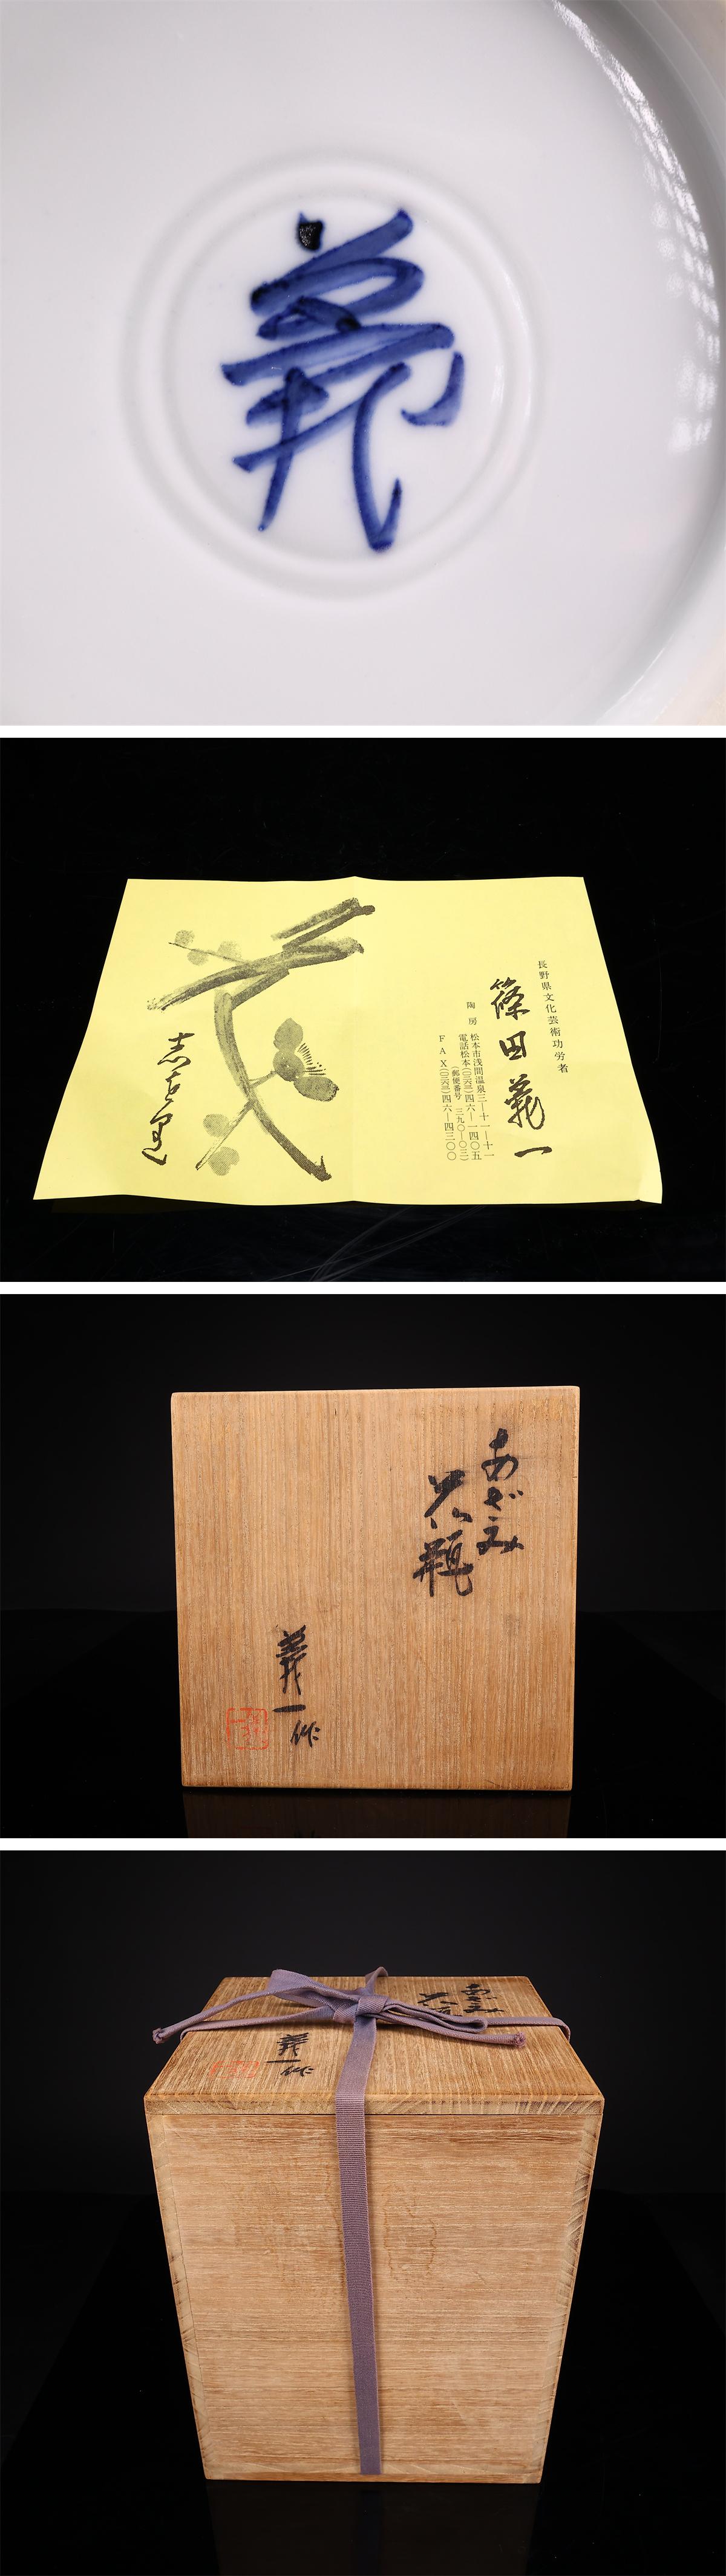 義
長野県文化芸術功労者
篠田義一
陶房
松本市浅間温泉三ー十一ー十一
電話松本(〇二六三)四六ー一四〇五
(郵便番号 三九〇ー〇三)
FAX(〇二六三)四六ー四三〇〇
あざみ
花瓶
義一作
あざみ
花瓶
義一作